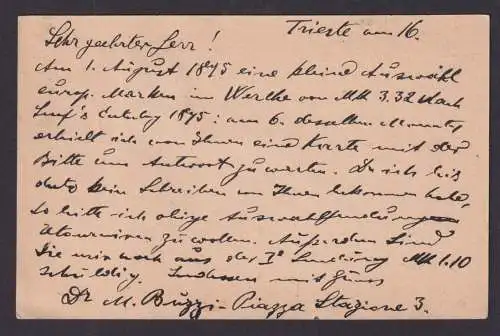 Trieste am 16.
Sehr geehrter Herr!
Am 1. August 1895 eine kleine Auswahl
europ. Marken im Werthe von Mk 3.32 nach
Senf's Catalog 1895; am 6. desselben Monates
erhielt ich von Ihnen eine Karte mit der
Bitte um Antwort zu warten. Da ich bis
dato kein Schreiben von Ihnen bekommen habe,
so bitte ich obige Auswahlsendung
retourniren zu wollen. Außerdem sind
Sie mir noch aus der I Sendung Mk 1.10
schuldig. Indessen mit Gruss
Dr M. Buzzi - Piazza Stazione 3.